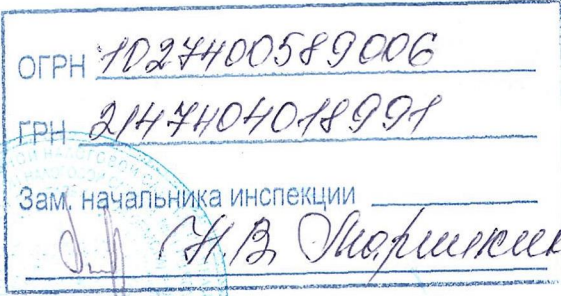 ОГРН 1027400589006
ГРН 2147404018991
Зам. начальника инспекции
Н.В.